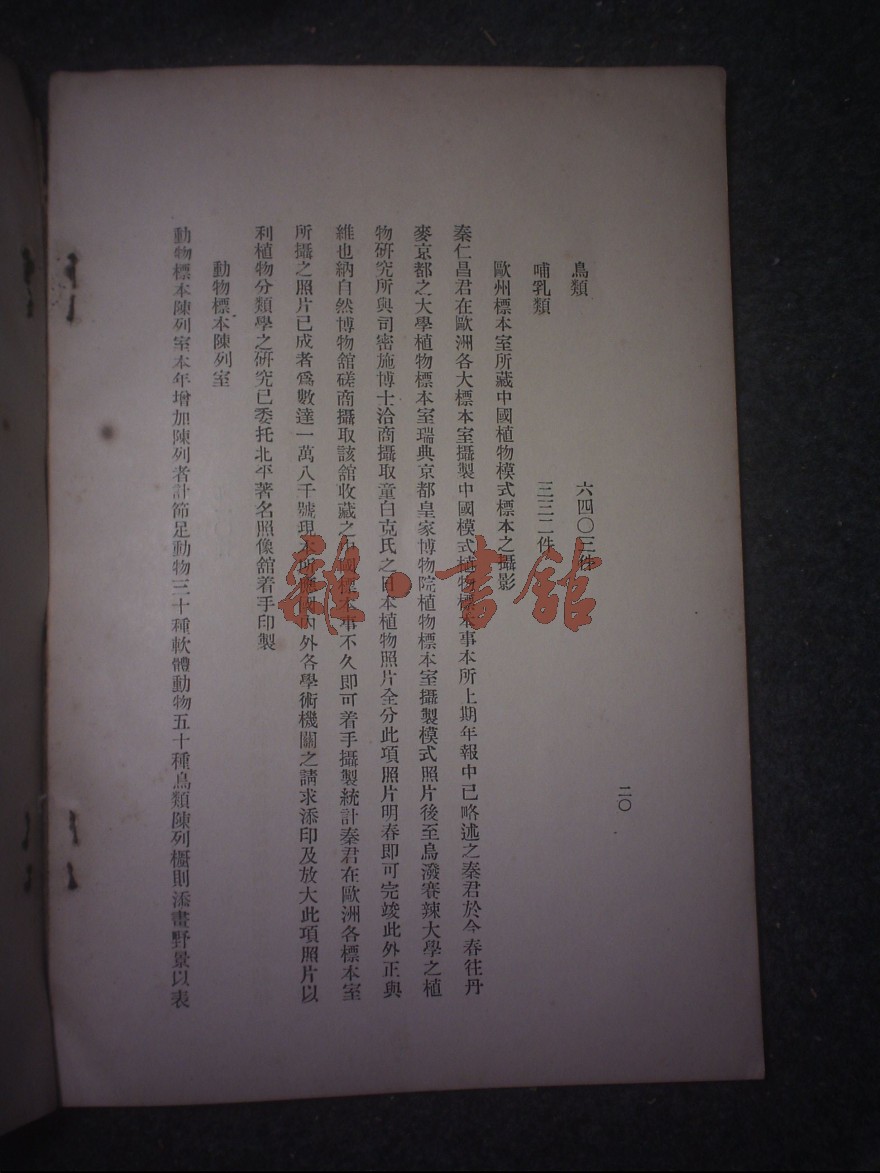 二〇
鳥類 六四〇三件
哺乳類 三三二件
歐州標本室所藏中國植物模式標本之攝影
秦仁昌君在歐洲各大標本室攝製中國模式植物標本事本所上期年報中已略述之秦君於今春往丹
麥京都之大學植物標本室瑞典京都皇家博物院植物標本室攝製模式照片後至烏潑賽辣大學之植
物研究所與司密施博士洽商攝取童白克氏之日本植物照片全分此項照片明春即可完竣此外正與
維也納自然博物舘磋商攝取該舘收藏之中國標本事不久即可着手攝製統計秦君在歐洲各標本室
所攝之照片已成者爲數達一萬八千號現本所應國內外各學術機關之請求添印及放大此項照片以
利植物分類學之研究已委托北平著名照像舘着手印製
動物標本陳列室
動物標本陳列室本年增加陳列者計節足動物三十種軟體動物五十種鳥類陳列櫃則添畫野景以表
雜·書舘